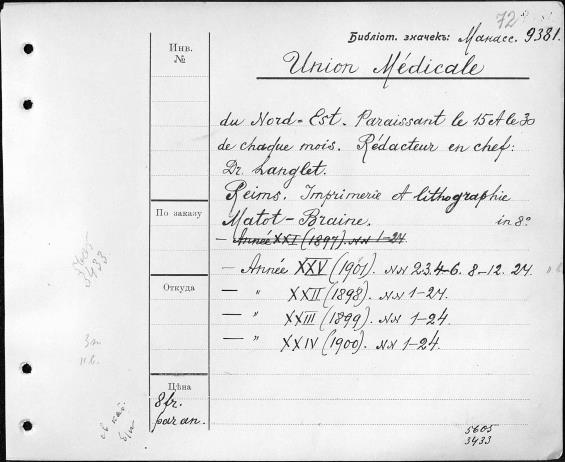 72
Библіот. значекъ: Манасс. 9381.
Инв.
№
Union Médicale
du Nord-Est. Paraissant le 15 et le 30
de chaque mois. Rédacteur en chef:
Dr. Langlet.
Reims. Imprimerie et lithographie
Matot-Braine. in 8º
По заказу
- Année XXI (1897). NN 1-24
- Année XXV (1901). NN 2.3.4-6. 8-12. 24.
Откуда
- " XXII (1898). NN 1-24.
- " XXIII (1899). NN 1-24.
- " XXIV (1900). NN 1-24.
Цѣна
8 fr.
par an.
5605
3433
5605
3433